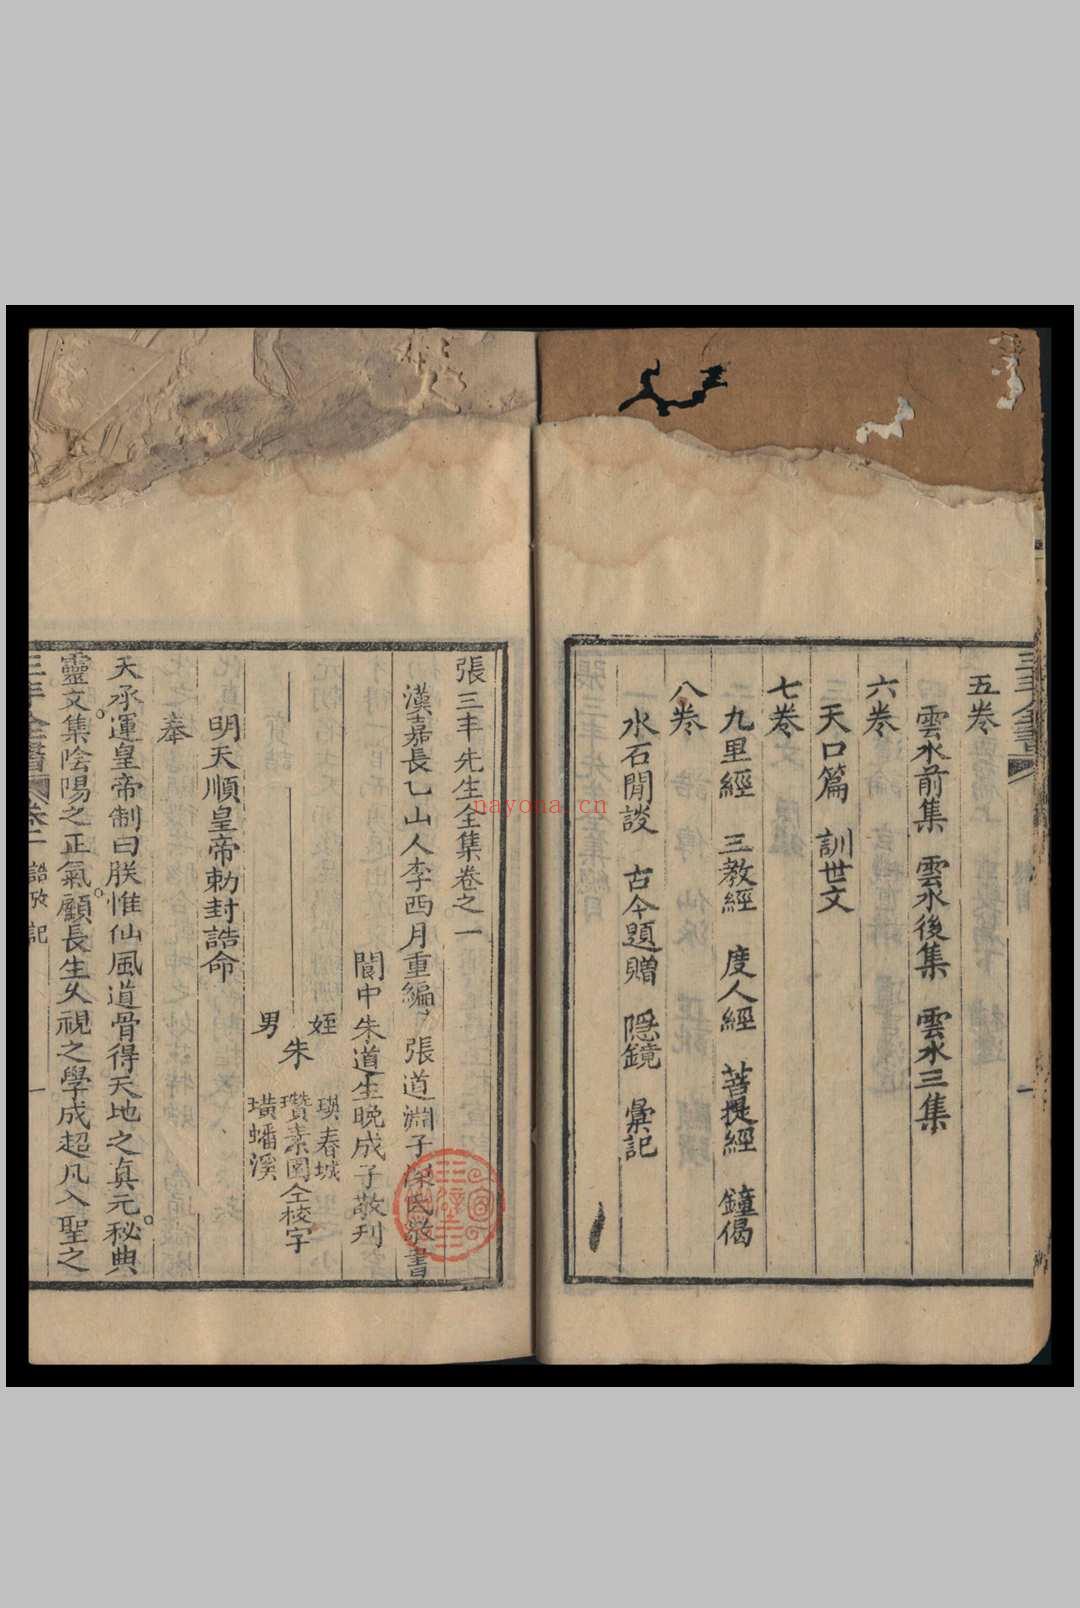 五卷
雲水前集 雲水後集 雲水三集
六卷
天口篇 訓世文
七卷
九皇經 三教經 度人經 菩提經 鐘偈
八卷
水石閒談 古今題贈 隱鏡 彙記
張三丰先生全集卷之一
漢嘉長乙山人李西月重編 張道淵子 氏敬書
閬中朱道生晚成子敬刊
姪 瑛春城
朱 瓚素園仝校字
男 璜蟠溪
明天順皇帝勅封誥命
奉
天承運皇帝制曰朕惟仙風道骨得天地之真元。秘典
靈文集陰陽之正氣。顧長生久視之學成超凡入聖之
三丰全書 卷一 誥敕記 一
nayona.cn